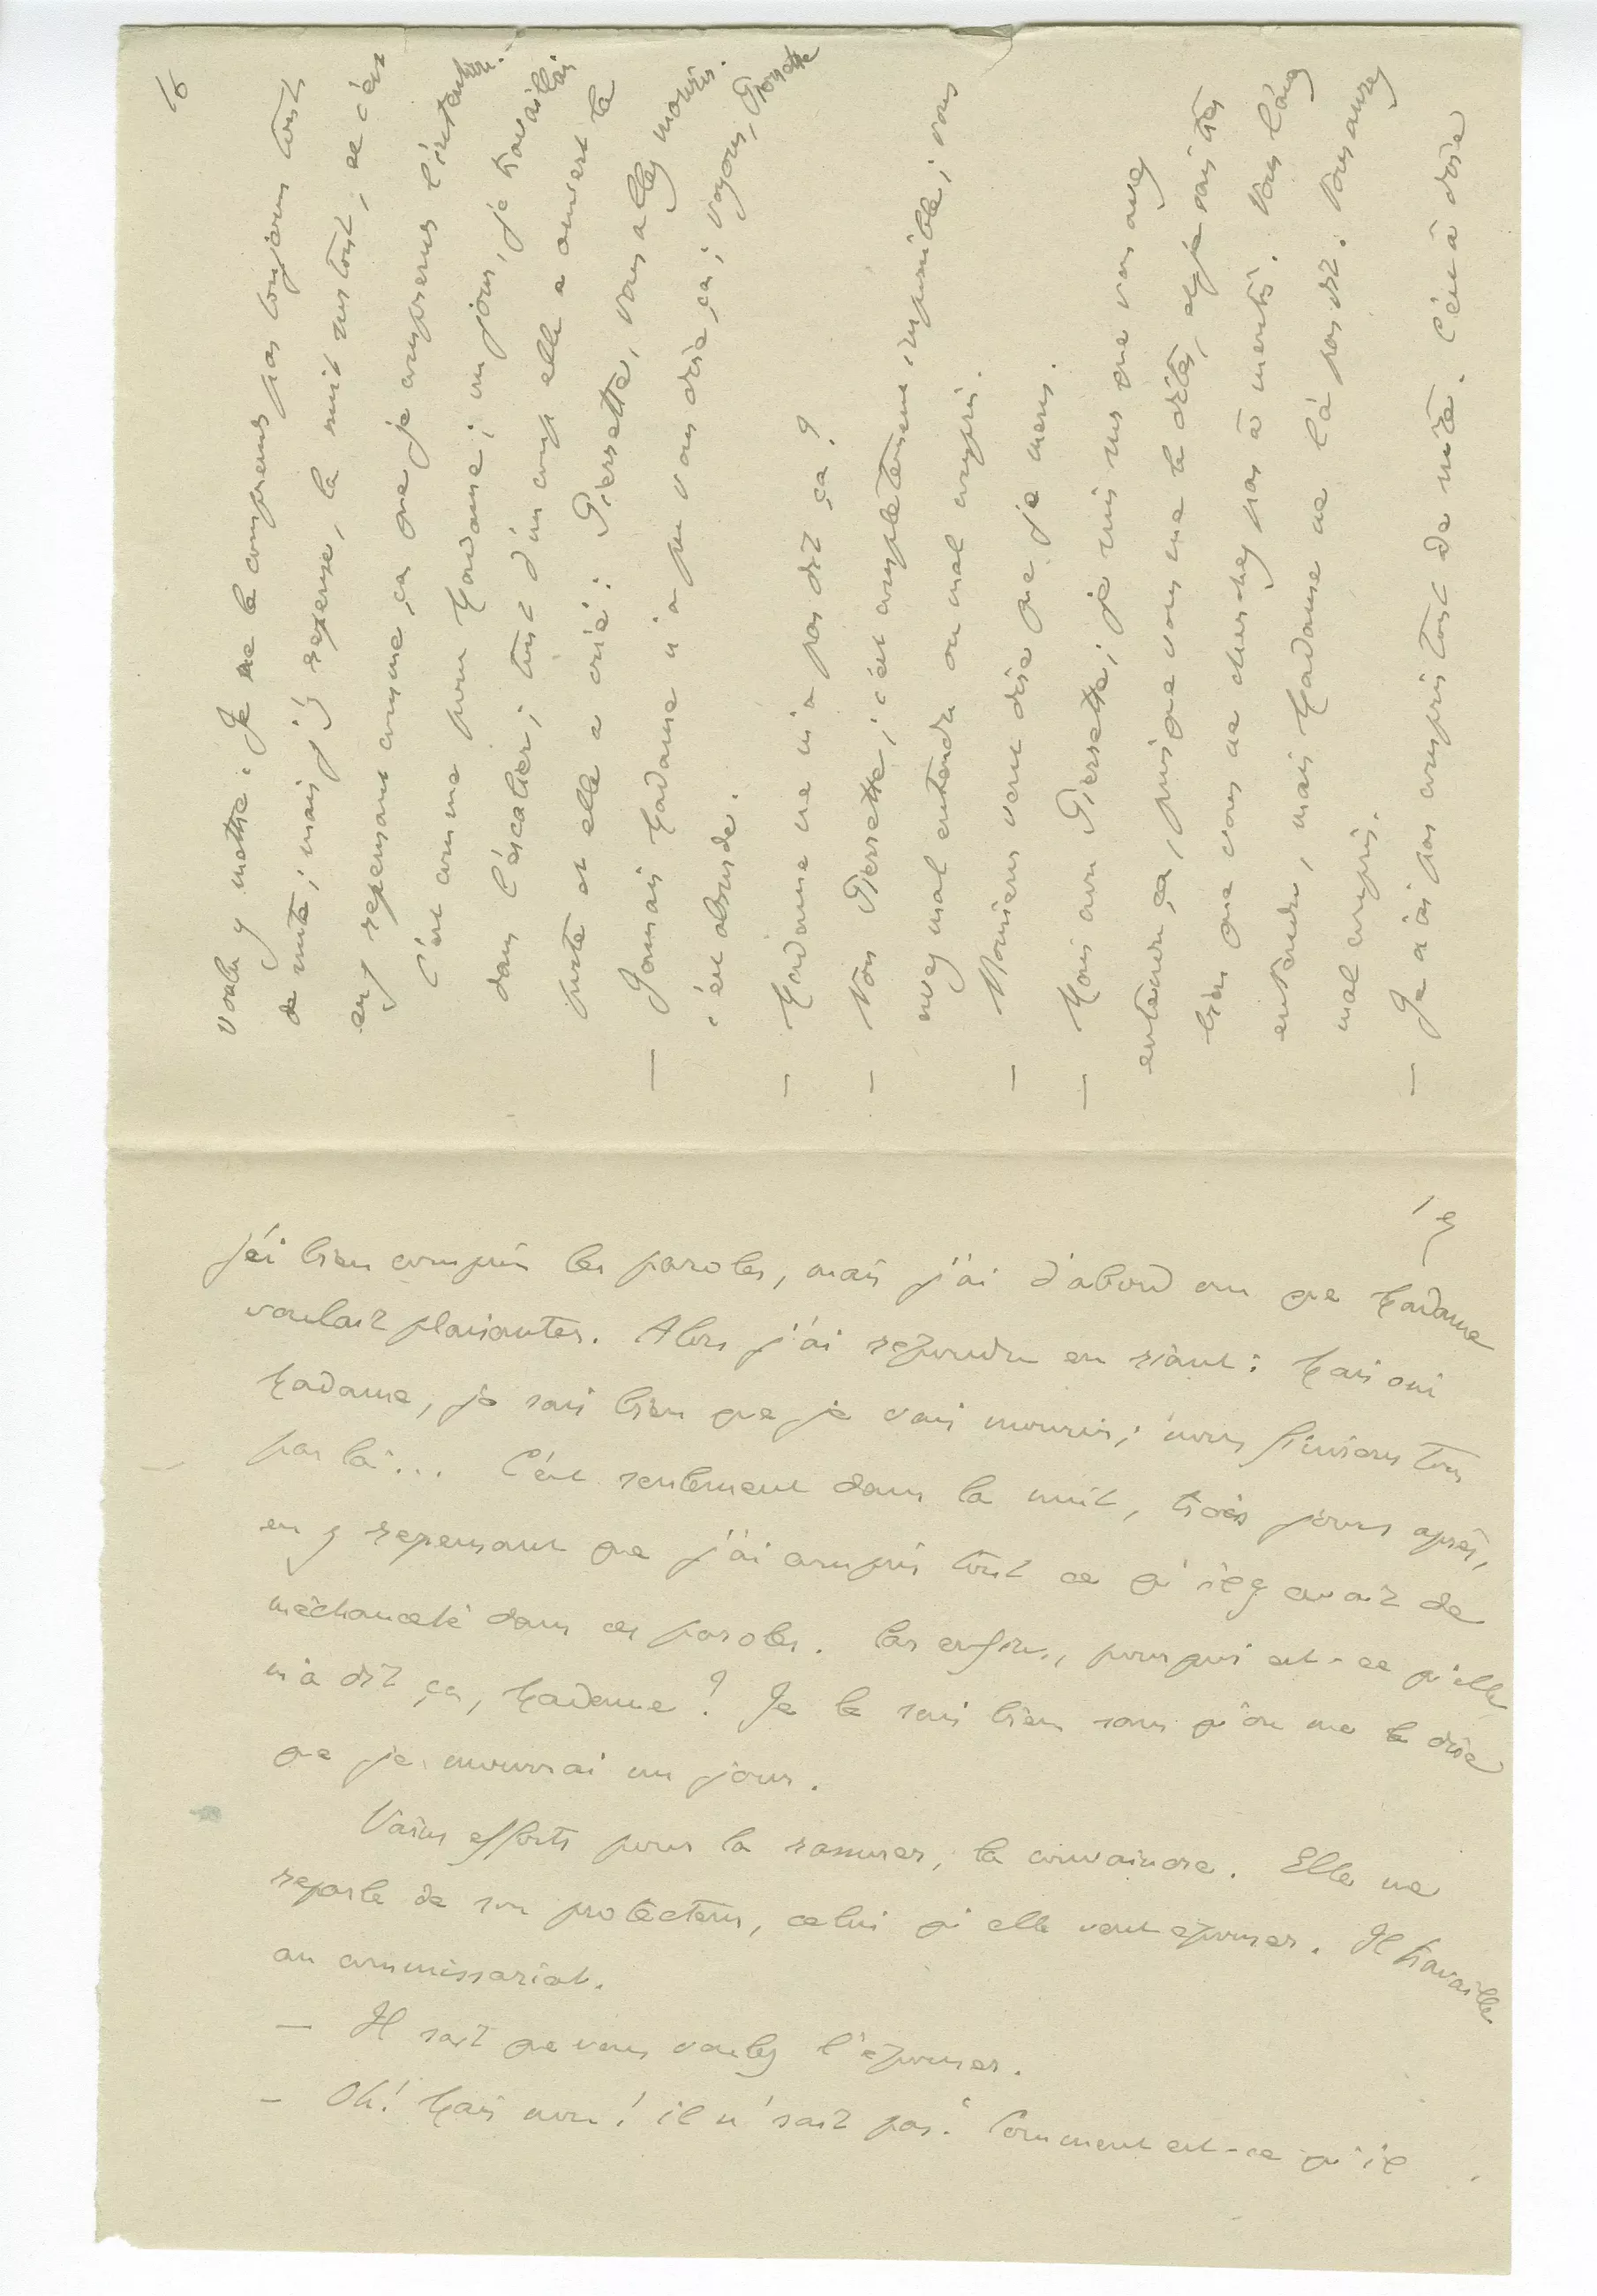 16
voulu y mettre. Je ne le comprends pas toujours tout
de suite; mais j'y repense, la nuit surtout, et c'est
en y repensant comme ça que je comprends l'intention.
C'est comme pour Madame; un jour, je travaillais
dans l'escalier; tout d'un coup elle a ouvert la
porte et elle a crié: Pierrette, vous allez mourir.
— Jamais Madame n'a pu vous dire ça; voyons, Pierrette
c'est absurde.
— Madame ne m'a pas dit ça?
— Non Pierrette; c'est complètement impossible; vous
avez mal entendu ou mal compris.
— Monsieur veut dire que je mens.
— Mais non Pierrette; je suis sûr que vous avez
entendu ça, puisque vous me le dites, et je sais très
bien que vous ne cherchez pas à mentir. Vous l'avez
entendu, mais Madame ne l'a pas dit. Vous aurez
mal compris.
— Je n'ai pas compris tout de suite. C'est à dire
17
j'ai bien compris les paroles, mais j'ai d'abord cru que Madame
voulait plaisanter. Alors j'ai répondu en riant: Mais oui
Madame, je sais bien que je vais mourir; nous finirons tous
par là... C'est seulement dans la nuit, trois jours après,
en y repensant que j'ai compris tout ce qu'il y avait de
méchanceté dans ces paroles. Car enfin, pourquoi est-ce qu'elle
m'a dit ça, Madame? Je le sais bien sans qu'on me le dise
que je mourrai un jour.
Vains efforts pour la rassurer, la convaincre. Elle me
reparle de son protecteur, celui qu'elle veut épouser. Il travaille
au commissariat.
— Il sait que vous voulez l'épouser.
— Oh! Mais non! il n'sait pas. Comment est-ce qu'il